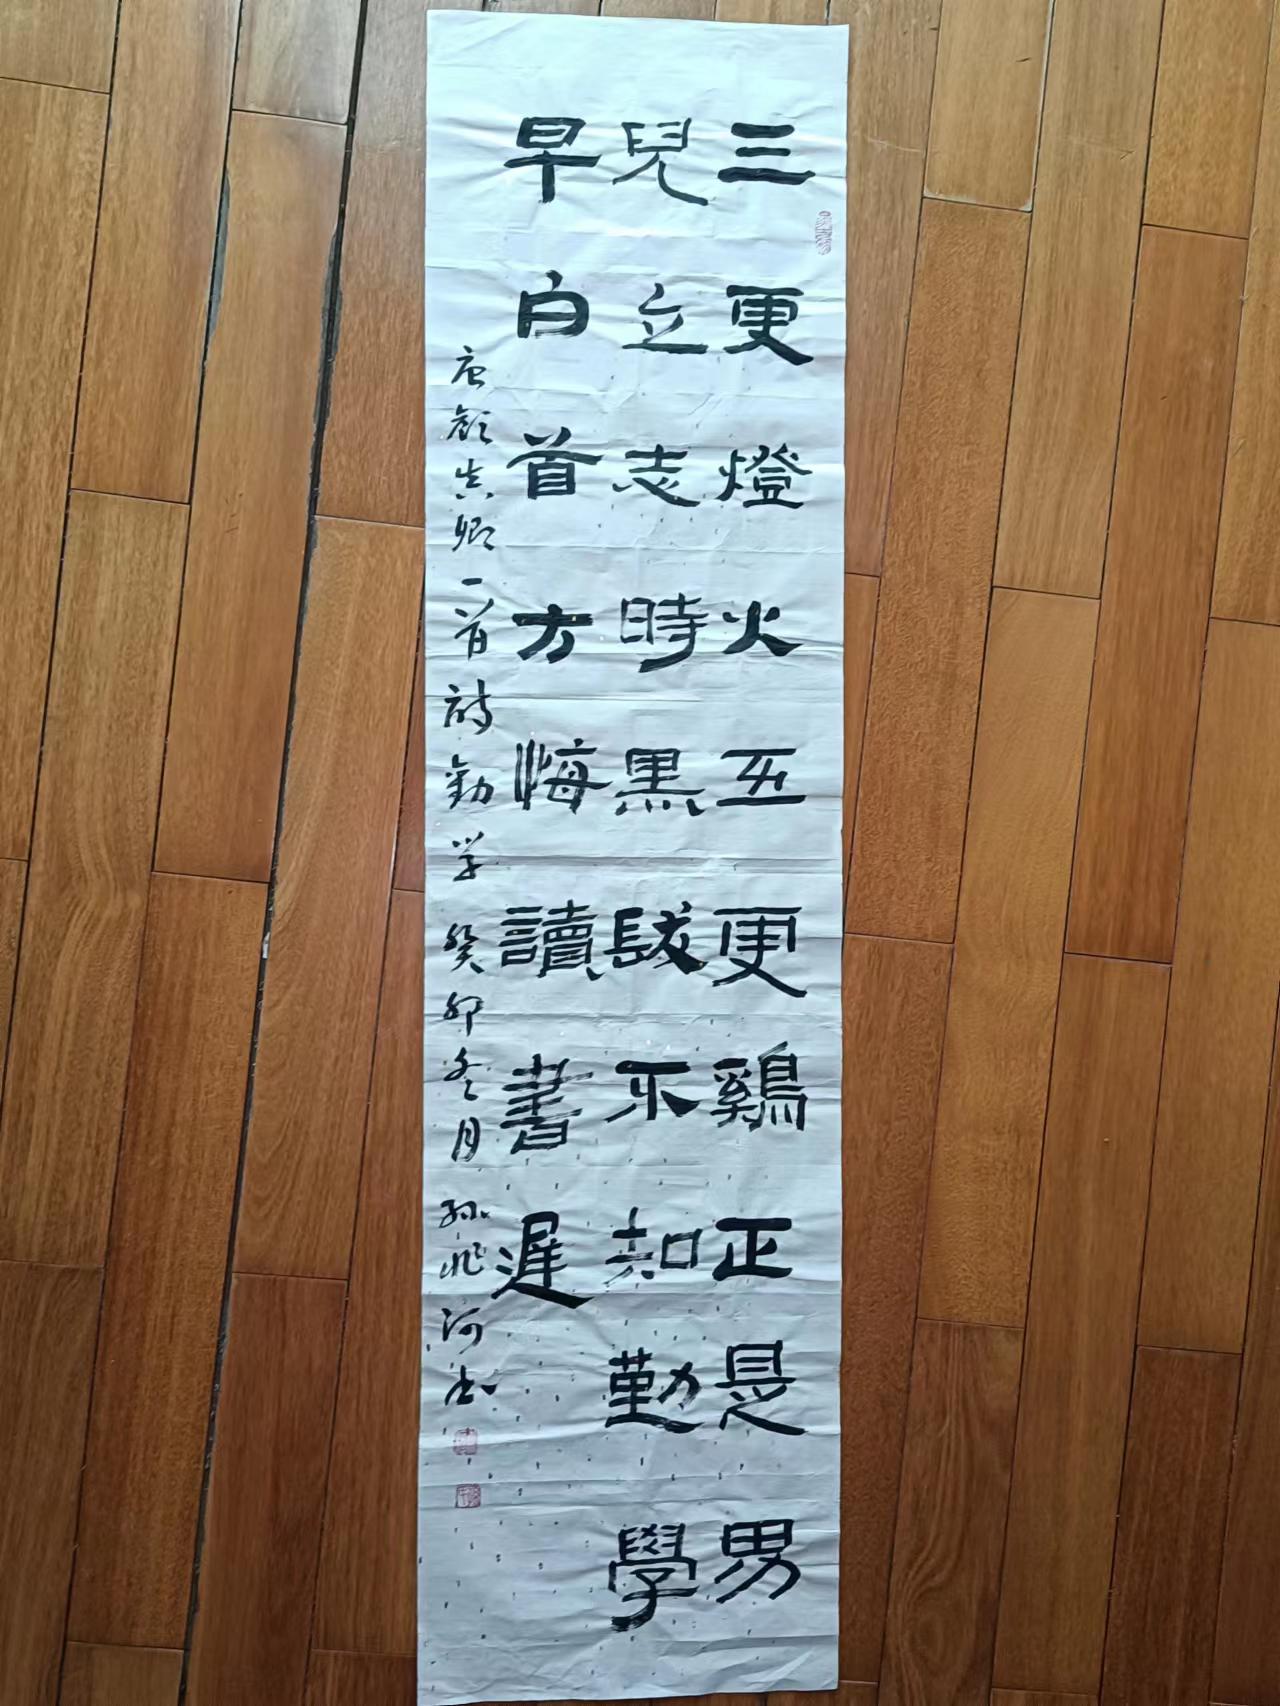 三更燈火五更鷄正是男
兒立志時黑髮不知勤學
早白首方悔讀書遲
唐顔真卿一首詩勸学 癸卯冬月 孙兆河书